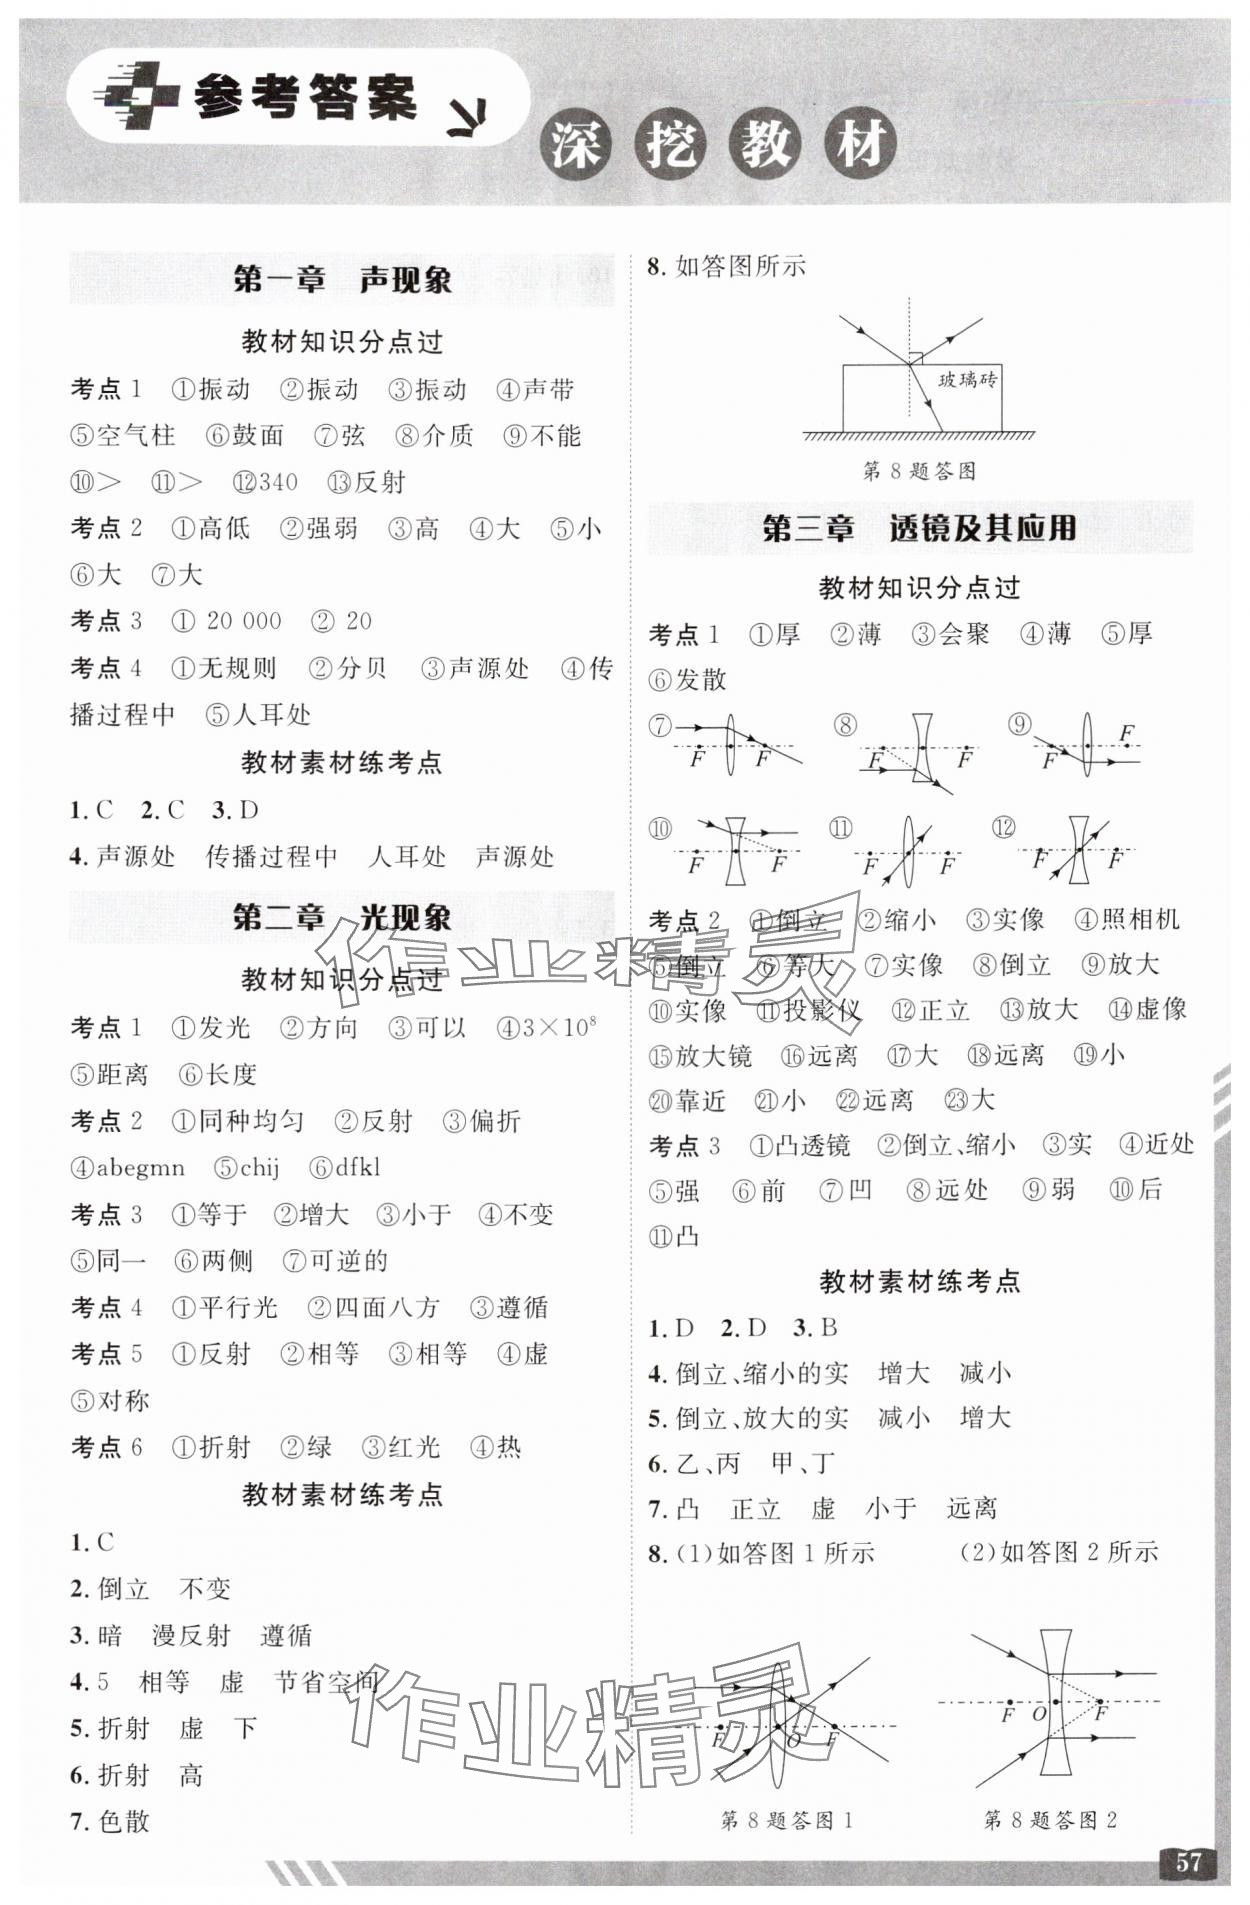 参考答案
深挖教材
第一章 声现象
教材知识分点过
考点1 ①振动 ②振动 ③振动 ④声带
⑤空气柱 ⑥鼓面 ⑦弦 ⑧介质 ⑨不能
⑩> ⑪> ⑫340 ⑬反射
考点2 ①高低 ②强弱 ③高 ④大 ⑤小
⑥大 ⑦大
考点3 ① 20 000 ② 20
考点4 ①无规则 ②分贝 ③声源处 ④传
播过程中 ⑤人耳处
教材素材练考点
1. C 2. C 3. D
4. 声源处 传播过程中 人耳处 声源处
第二章 光现象
教材知识分点过
考点1 ①发光 ②方向 ③可以 ④3×10⁸
⑤距离 ⑥长度
考点2 ①同种均匀 ②反射 ③偏折
④abegmn ⑤chij ⑥dfkl
考点3 ①等于 ②增大 ③小于 ④不变
⑤同一 ⑥两侧 ⑦可逆的
考点4 ①平行光 ②四面八方 ③遵循
考点5 ①反射 ②相等 ③相等 ④虚
⑤对称
考点6 ①折射 ②绿 ③红光 ④热
教材素材练考点
1. C
2. 倒立 不变
3. 暗 漫反射 遵循
4. 5 相等 虚 节省空间
5. 折射 虚 下
6. 折射 高
7. 色散
8. 如答图所示
玻璃砖
第8题答图
第三章 透镜及其应用
教材知识分点过
考点1 ①厚 ②薄 ③会聚 ④薄 ⑤厚
⑥发散
⑦ F F ⑧ F F ⑨ F F
⑩ F F ⑪ F F ⑫ F F
考点2 ①倒立 ②缩小 ③实像 ④照相机
⑤倒立 ⑥等大 ⑦实像 ⑧倒立 ⑨放大
⑩实像 ⑪投影仪 ⑫正立 ⑬放大 ⑭虚像
⑮放大镜 ⑯远离 ⑰大 ⑱远离 ⑲小
⑳靠近 ㉑小 ㉒远离 ㉓大
考点3 ①凸透镜 ②倒立、缩小 ③实 ④近处
⑤强 ⑥前 ⑦凹 ⑧远处 ⑨弱 ⑩后
⑪凸
教材素材练考点
1. D 2. D 3. B
4. 倒立、缩小的实 增大 减小
5. 倒立、放大的实 减小 增大
6. 乙、丙 甲、丁
7. 凸 正立 虚 小于 远离
8. (1)如答图1所示 (2)如答图2所示
F O F
F O F
第8题答图1 第8题答图2
作业精灵
作业精灵
57